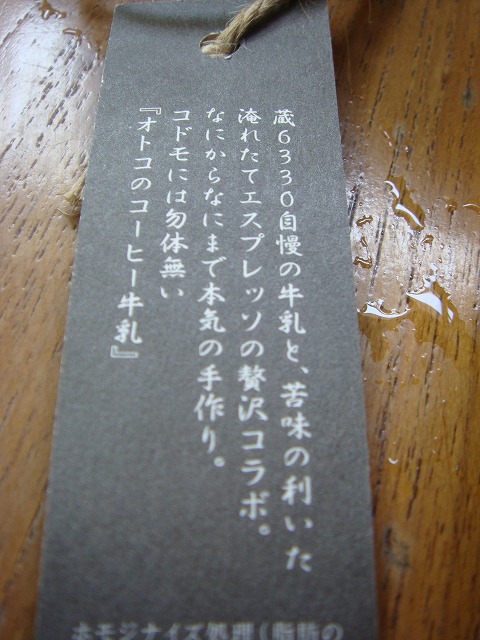 蔵6330自慢の牛乳と、苦味の利いた
淹れたてエスプレッソの贅沢コラボ。
なにからなにまで本気の手作り。
コドモには勿体無い
『オトコのコーヒー牛乳』
ホモジナイズ処理(脂肪の